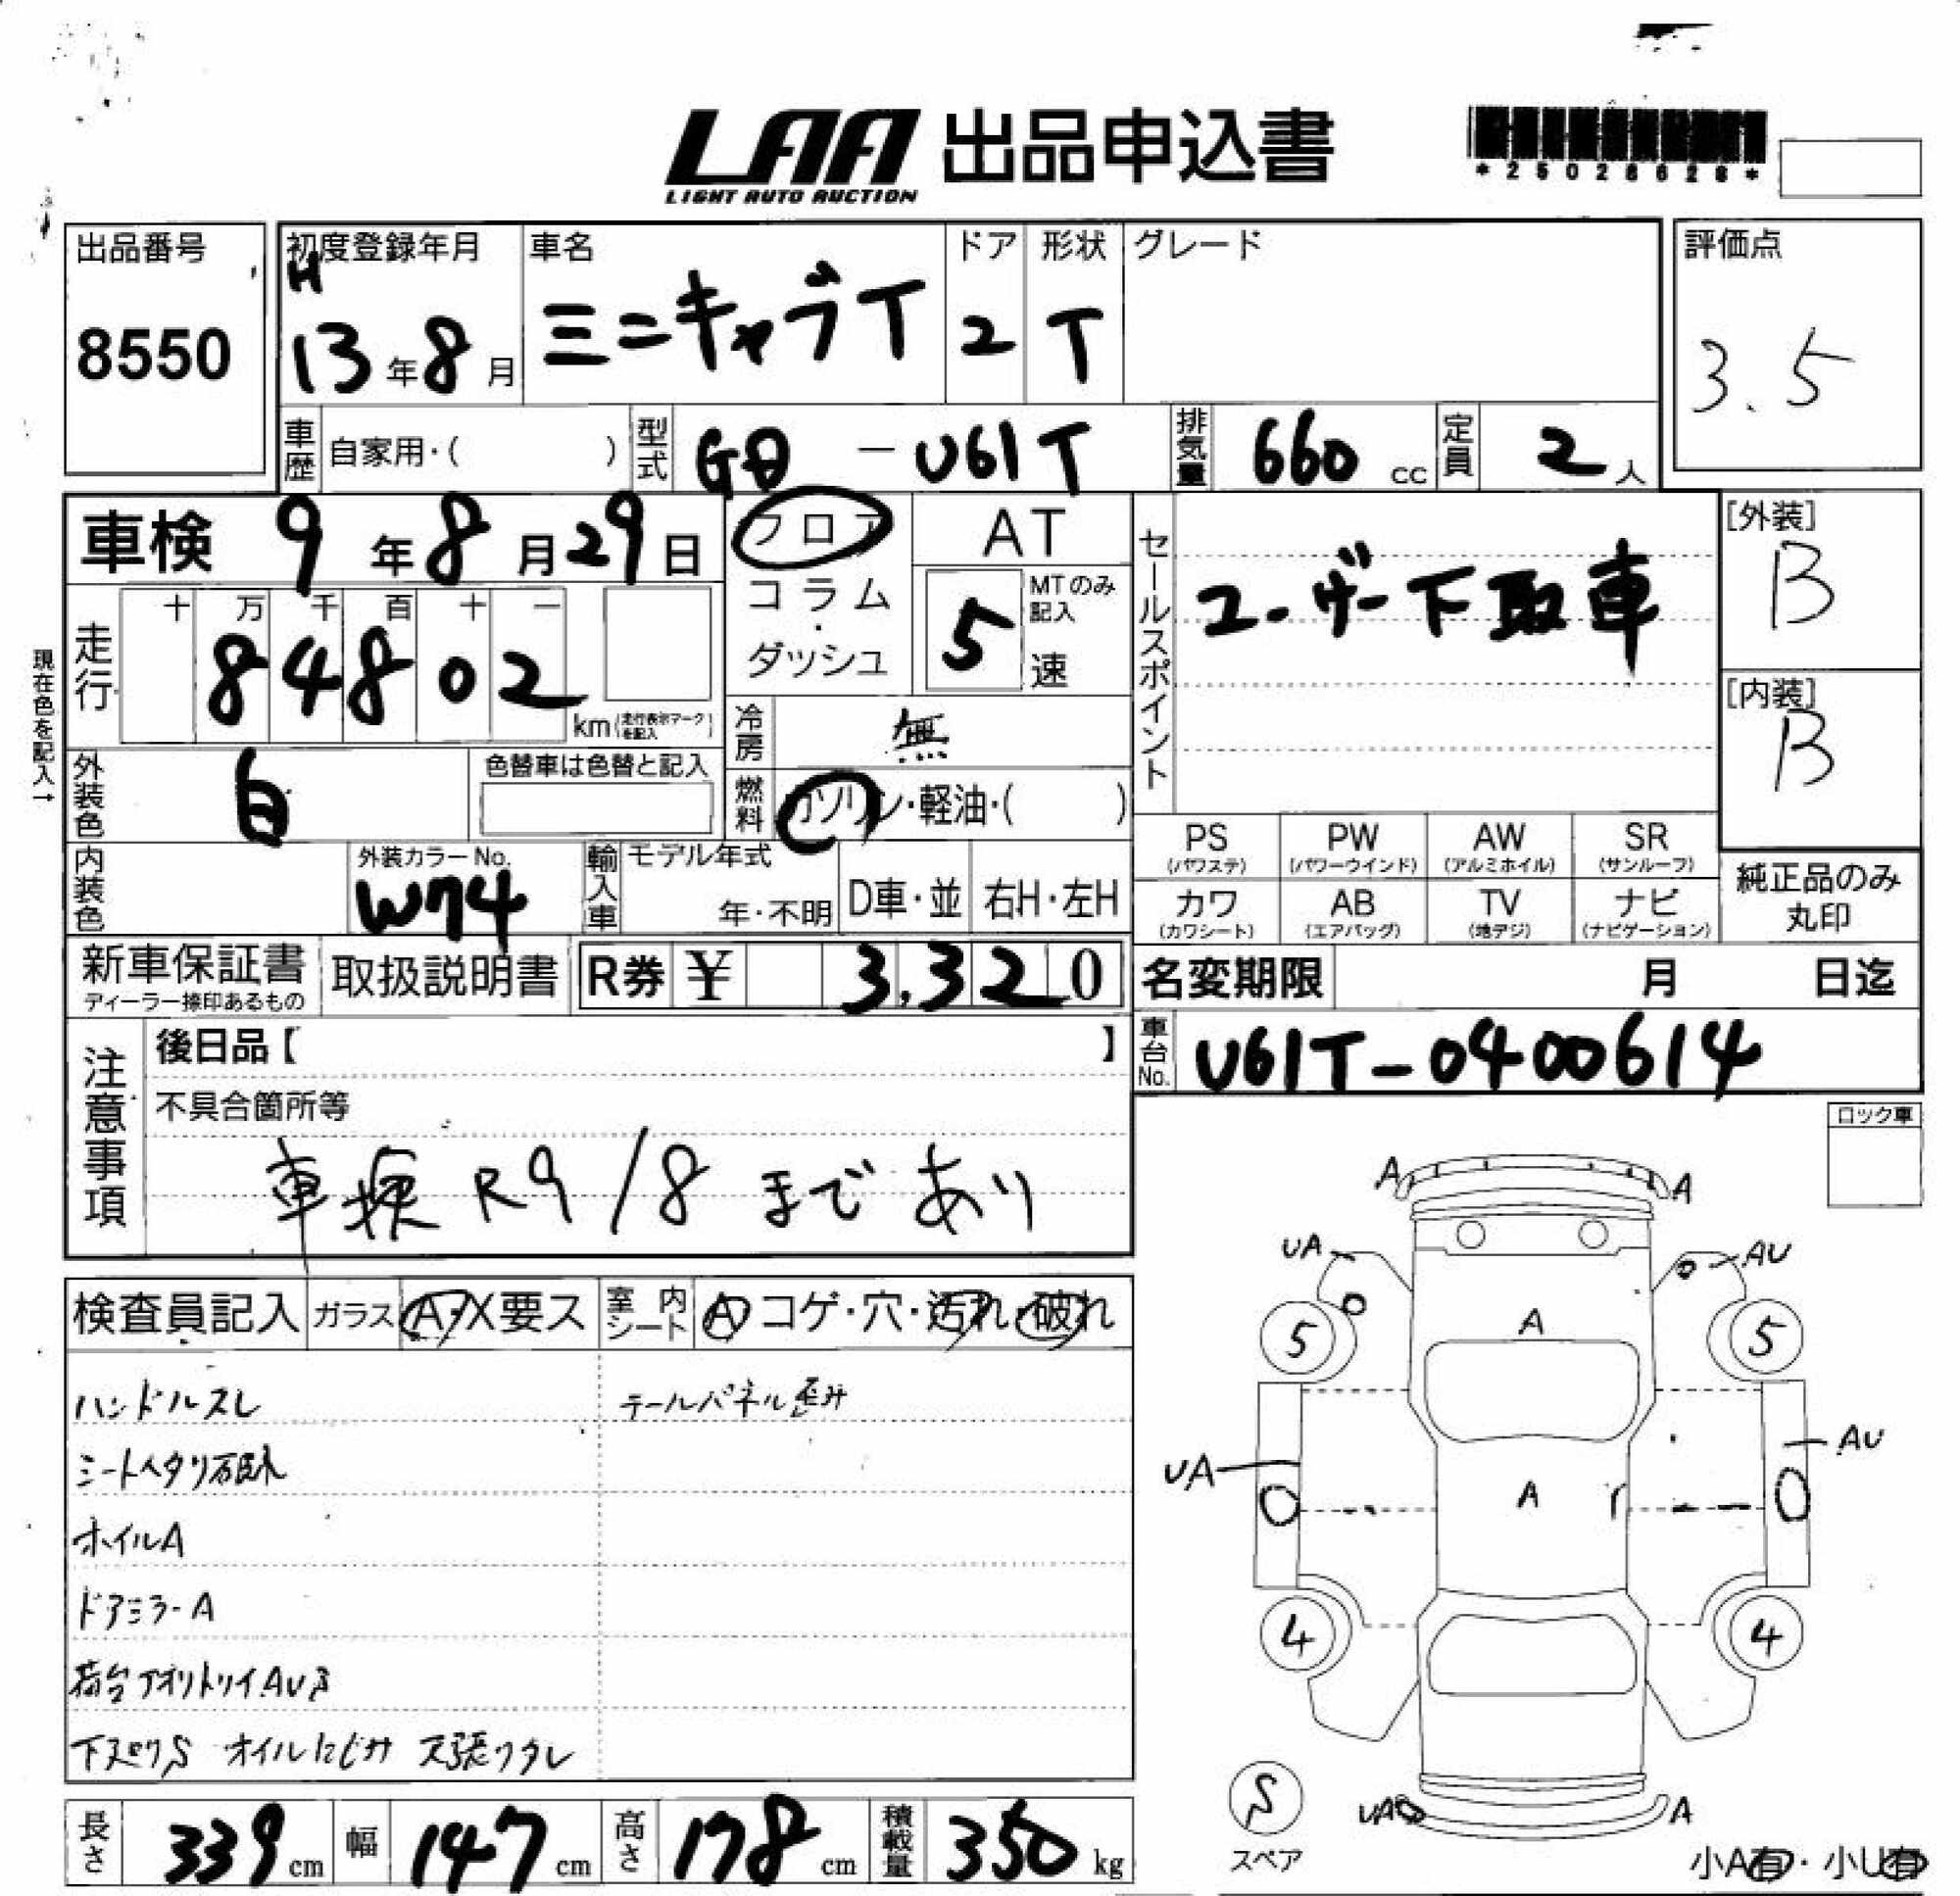 LAA 出品申込書
LIGHT AUTO AUCTION
*25028628*
出品番号
8550
初度登録年月
H
13年8月
車名
ミニキャブT
ドア
2
形状
T
グレード
評価点
3.5
車歴 自家用・( )
型式 GD - U61T
排気量 660 cc
定員 2人
車検 9年8月29日
フロア
コラム
・
ダッシュ
AT
5
MTのみ記入
速
セールスポイント
ユーザー下取車
[外装]
B
[内装]
B
現在色を記入→
走行
十 万 千 百 十 一
84802
km(走行表示マークを記入)
冷房 無
燃料 ガソリン・軽油・( )
外装色 白
色替車は色替と記入
内装色
外装カラーNo.
W74
輸入車
モデル年式
年・不明
D車・並
右H・左H
PS (パワステ)
PW (パワーウインド)
AW (アルミホイル)
SR (サンルーフ)
カワ (カワシート)
AB (エアバッグ)
TV (地デジ)
ナビ (ナビゲーション)
純正品のみ
丸印
新車保証書
ディーラー捺印あるもの
取扱説明書
R券 ¥ 3,320
名変期限 月 日迄
車台No. U61T-0400614
注意事項
後日品【 】
不具合箇所等
車検 R9/8 まで あり
ロック車
検査員記入
ガラス A・X要ス
室内シート A コゲ・穴・汚れ・破れ
ハンドルスレ
シートヘタリ破れ
ホイルA
ドアミラーA
荷台アオリトリイAU
下廻りS オイルにじみ 天張りタレ
テールパネル歪み
A A
UA AU
5 A 5
UA A AU
4 4
S
スペア
UA A
小A有・小U有
長さ 339 cm
幅 147 cm
高さ 178 cm
積載量 350 kg